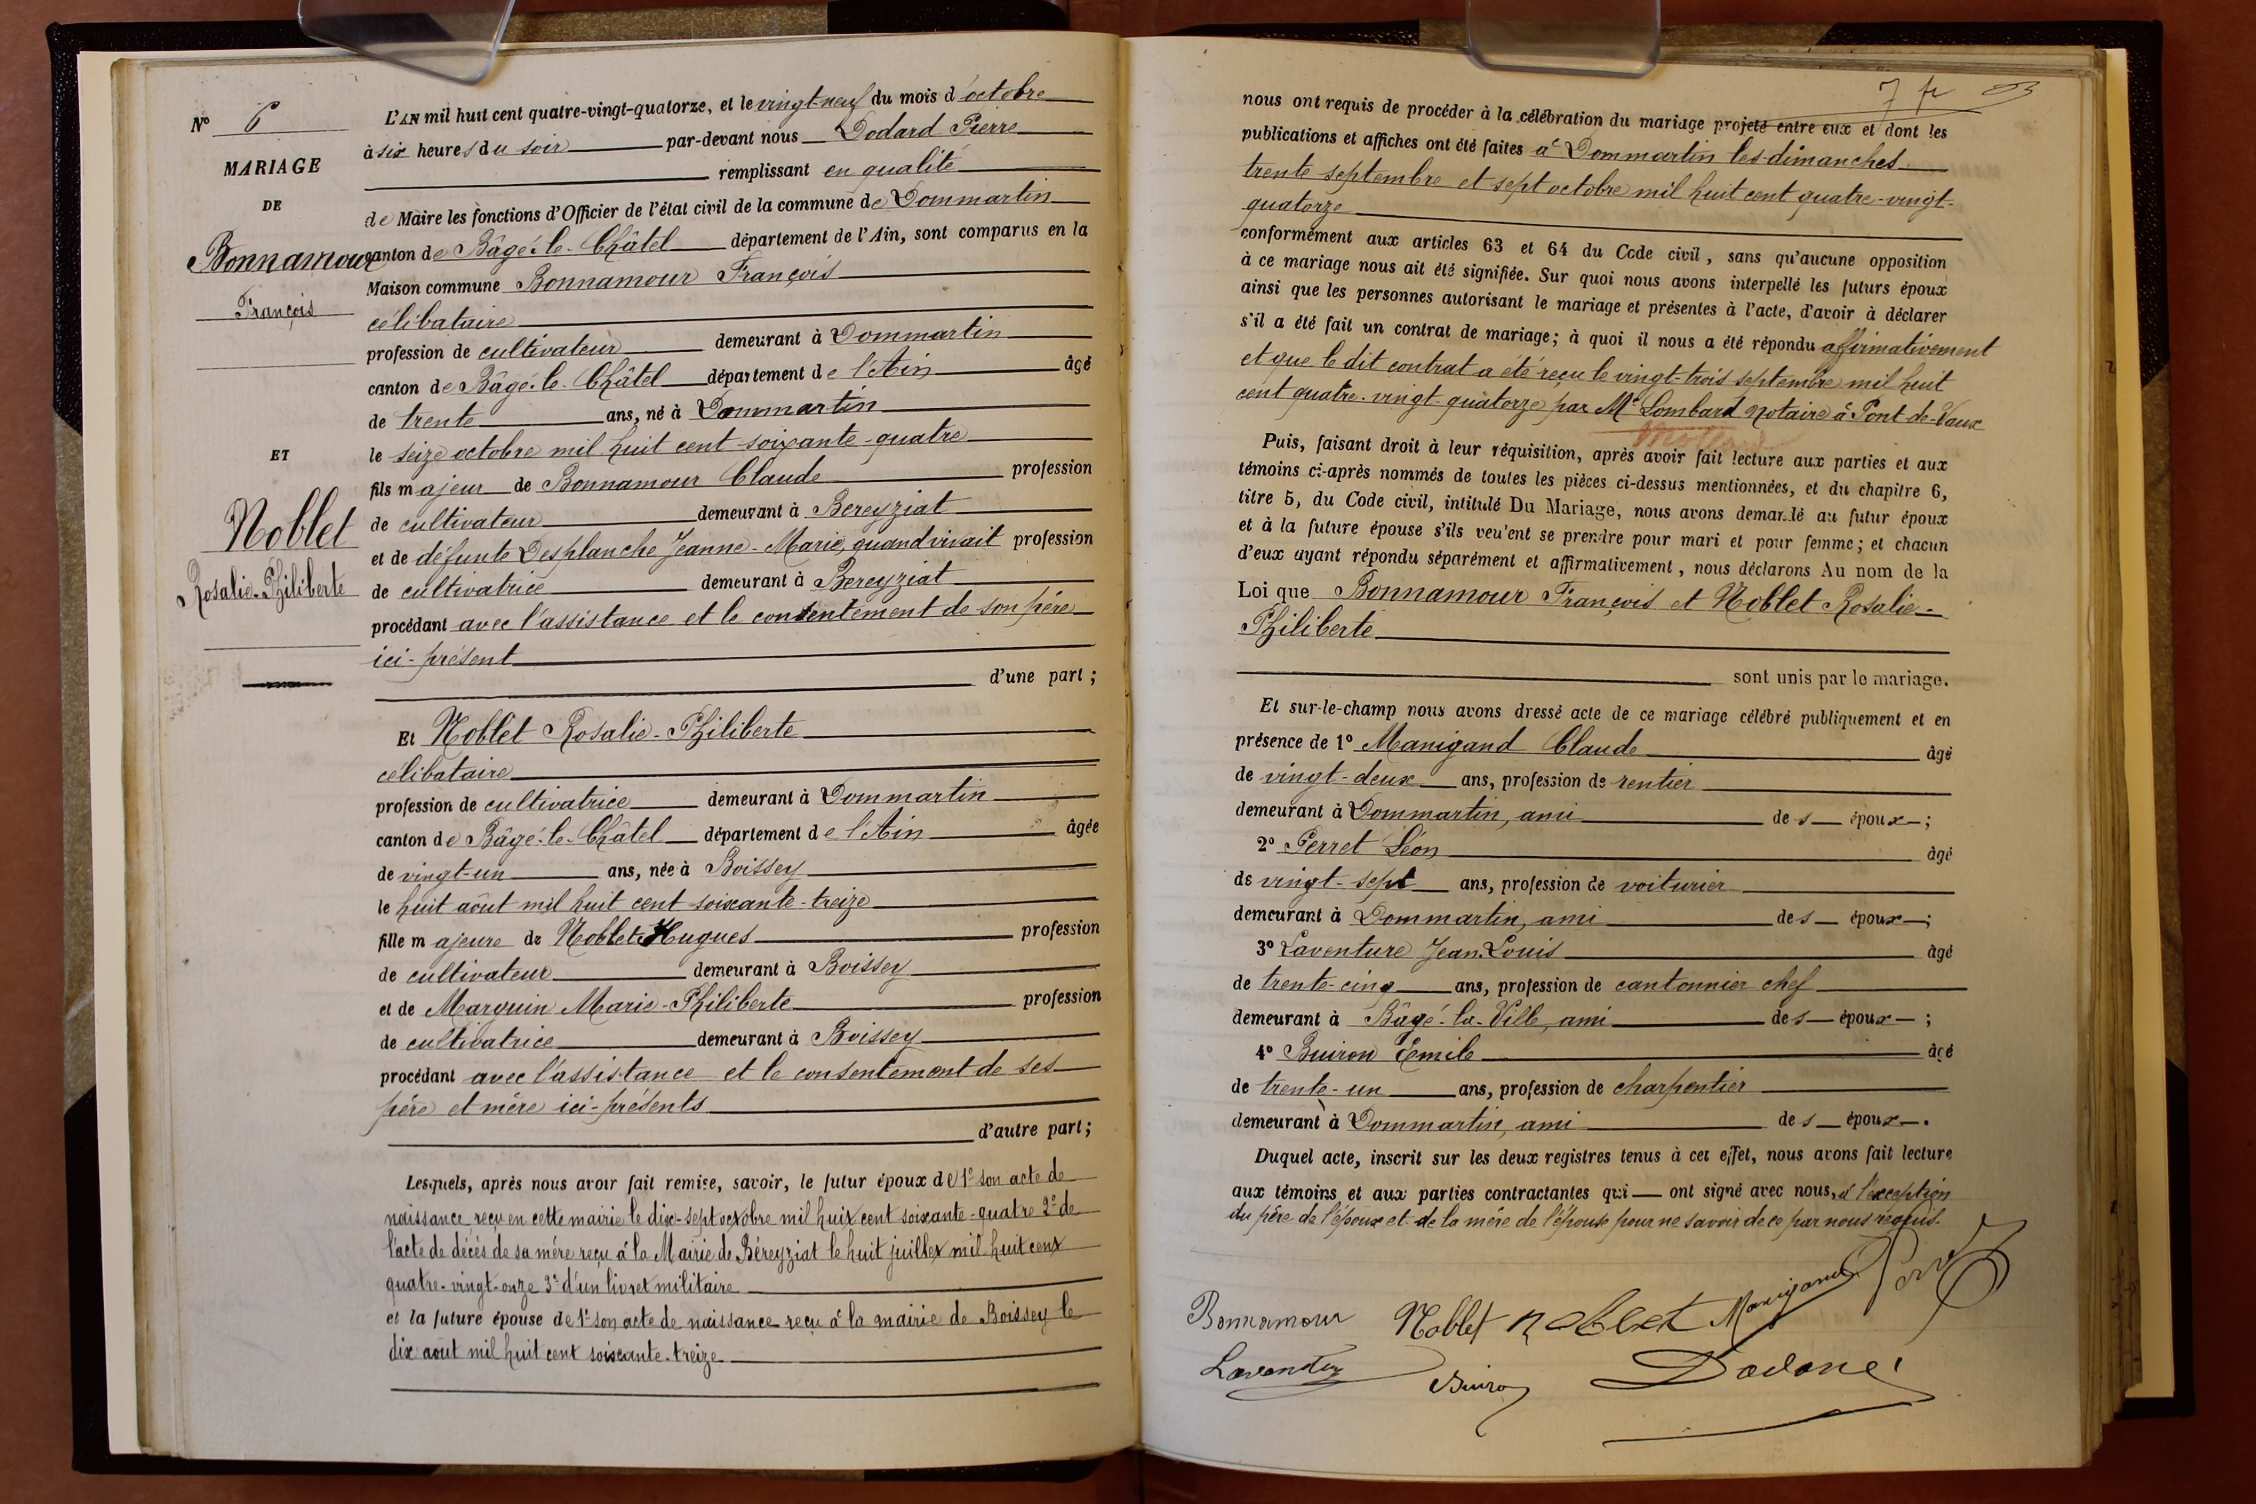 N° 6
MARIAGE
DE
Bonnamour
François
ET
Noblet
Rosalie-Philiberte
L'AN mil huit cent quatre-vingt-quatorze, et le vingt-neuf du mois d'octobre
à six heures du soir par-devant nous Dodard Pierre
remplissant en qualité
de Maire les fonctions d'Officier de l'état civil de la commune de Dommartin
canton de Bâgé-le-Châtel département de l'Ain, sont comparus en la
Maison commune Bonnamour François
célibataire
profession de cultivateur demeurant à Dommartin
canton de Bâgé-le-Châtel département de l'Ain âgé
de trente ans, né à Dommartin
le seize octobre mil huit cent soixante-quatre
fils majeur de Bonnamour Claude profession
de cultivateur demeurant à Bereyziat
et de défunte Desplanche Jeanne-Marie, quand vivait profession
de cultivatrice demeurant à Bereyziat
procédant avec l'assistance et le consentement de son père
ici-présent
d'une part ;
Et Noblet Rosalie-Philiberte
célibataire
profession de cultivatrice demeurant à Dommartin
canton de Bâgé-le-Châtel département de l'Ain âgée
de vingt-un ans, née à Boissey
le huit août mil huit cent soixante-treize
fille majeure de Noblet Hugues profession
de cultivateur demeurant à Boissey
et de Marguin Marie-Philiberte profession
de cultivatrice demeurant à Boissey
procédant avec l'assistance et le consentement de ses
père et mère ici-présents
d'autre part ;
Lesquels, après nous avoir fait remise, savoir, le futur époux de 1° son acte de
naissance reçu en cette mairie le dix-sept octobre mil huit cent soixante-quatre 2° de
l'acte de décès de sa mère reçu à la Mairie de Béreyziat le huit juillet mil huit cent
quatre-vingt-onze 3° d'un livret militaire
et la future épouse de 1° son acte de naissance reçu à la mairie de Boissey le
dix août mil huit cent soixante-treize
7 fr
nous ont requis de procéder à la célébration du mariage projeté entre eux et dont les
publications et affiches ont été faites à Dommartin les dimanches
trente septembre et sept octobre mil huit cent quatre-vingt-
quatorze
conformément aux articles 63 et 64 du Code civil, sans qu'aucune opposition
à ce mariage nous ait été signifiée. Sur quoi nous avons interpellé les futurs époux
ainsi que les personnes autorisant le mariage et présentes à l'acte, d'avoir à déclarer
s'il a été fait un contrat de mariage; à quoi il nous a été répondu affirmativement
et que le dit contrat a été reçu le vingt-trois septembre mil huit
cent quatre-vingt-quatorze par Me Lombard notaire à Pont-de-Vaux
Puis, faisant droit à leur réquisition, après avoir fait lecture aux parties et aux
témoins ci-après nommés de toutes les pièces ci-dessus mentionnées, et du chapitre 6,
titre 5, du Code civil, intitulé Du Mariage, nous avons demandé au futur époux
et à la future épouse s'ils veulent se prendre pour mari et pour femme; et chacun
d'eux ayant répondu séparément et affirmativement, nous déclarons Au nom de la
Loi que Bonnamour François et Noblet Rosalie-
Philiberte
sont unis par le mariage.
Et sur-le-champ nous avons dressé acte de ce mariage célébré publiquement et en
présence de 1° Manigand Claude âgé
de vingt-deux ans, profession de rentier
demeurant à Dommartin, ami des époux ;
2° Perret Léon âgé
de vingt-sept ans, profession de voiturier
demeurant à Dommartin, ami des époux ;
3° Laventure Jean-Louis âgé
de trente-cinq ans, profession de cantonnier chef
demeurant à Bâgé-la-Ville, ami des époux ;
4° Buiron Emile âgé
de trente-un ans, profession de charpentier
demeurant à Dommartin, ami des époux.
Duquel acte, inscrit sur les deux registres tenus à cet effet, nous avons fait lecture
aux témoins et aux parties contractantes qui ont signé avec nous, à l'exception
du père de l'époux et de la mère de l'épouse pour ne savoir de ce par nous requis.
Bonnamour Noblet Noblet Manigand
Laventure Buiron Dodard